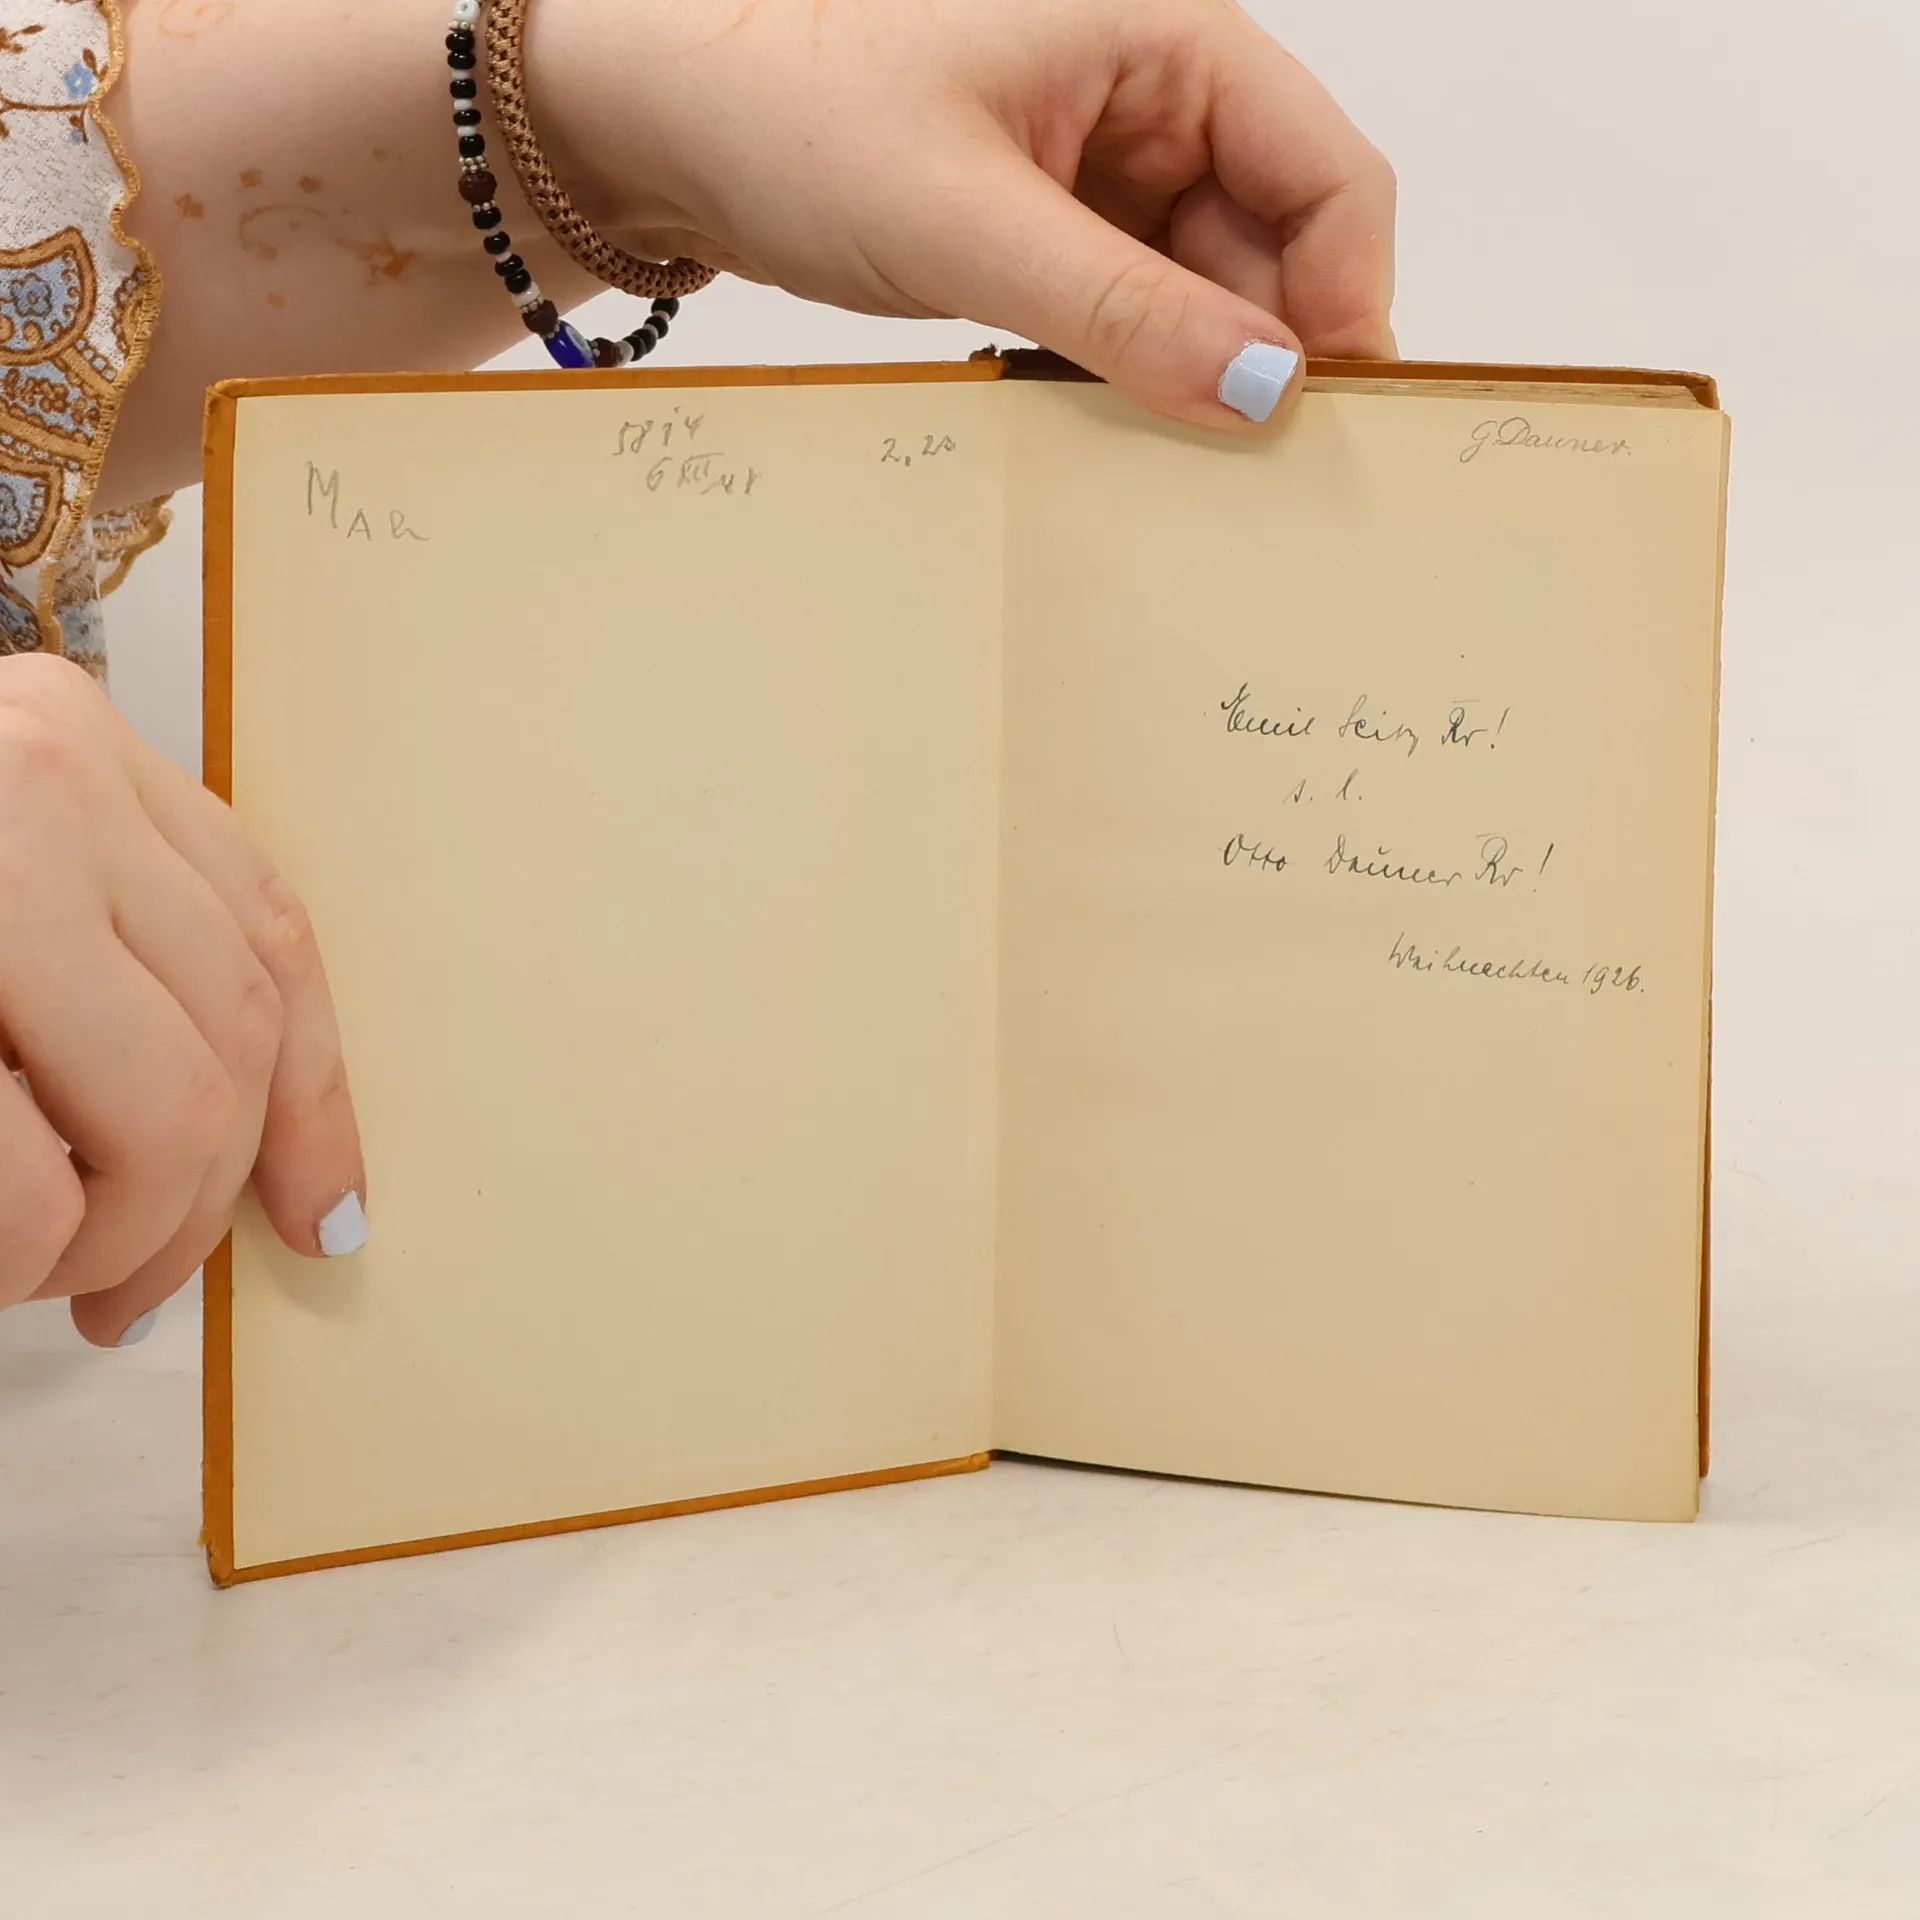 MAR
2,20
G. Dauner.
Emil Seitz Rr!
s. l.
Otto Dauner Rr!
Weihnachten 1926.